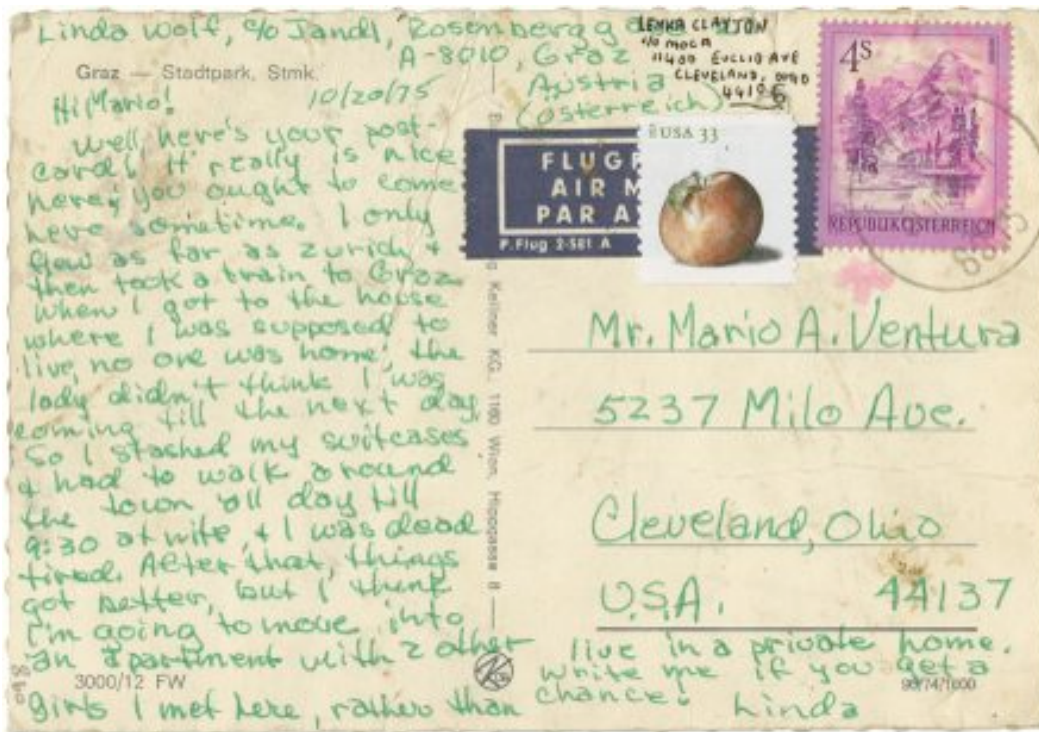 Linda Wolf, c/o Jandl, Rosenbergg
A-8010, Graz
Austria
(Österreich)
LENKA CLAYTON
c/o MOCA
11400 EUCLID AVE
CLEVELAND, OHIO
44106
4S
REPUBLIK ÖSTERREICH
Graz — Stadtpark, Stmk.
10/20/75
Hi Mario!
Well, here's your post-
card! It really is nice
here; you ought to come
here sometime. I only
flew as far as Zurich &
then took a train to Graz.
When I got to the house
where I was supposed to
live, no one was home; the
lady didn't think I was
coming till the next day.
So I stashed my suitcases
& had to walk around
the town all day till
9:30 at nite, & I was dead
tired. After that, things
got better, but I think
I'm going to move into
an apartment with 2 other
girls I met here, rather than
live in a private home.
Write me if you get a
chance!
Linda
USA 33
FLUGP
AIR M
PAR A
P.Flug 2-581 A
Mr. Mario A. Ventura
5237 Milo Ave.
Cleveland, Ohio
U.S.A. 44137
Kellner KG, 1160 Wien, Hippgasse 8 —
3000/12 FW